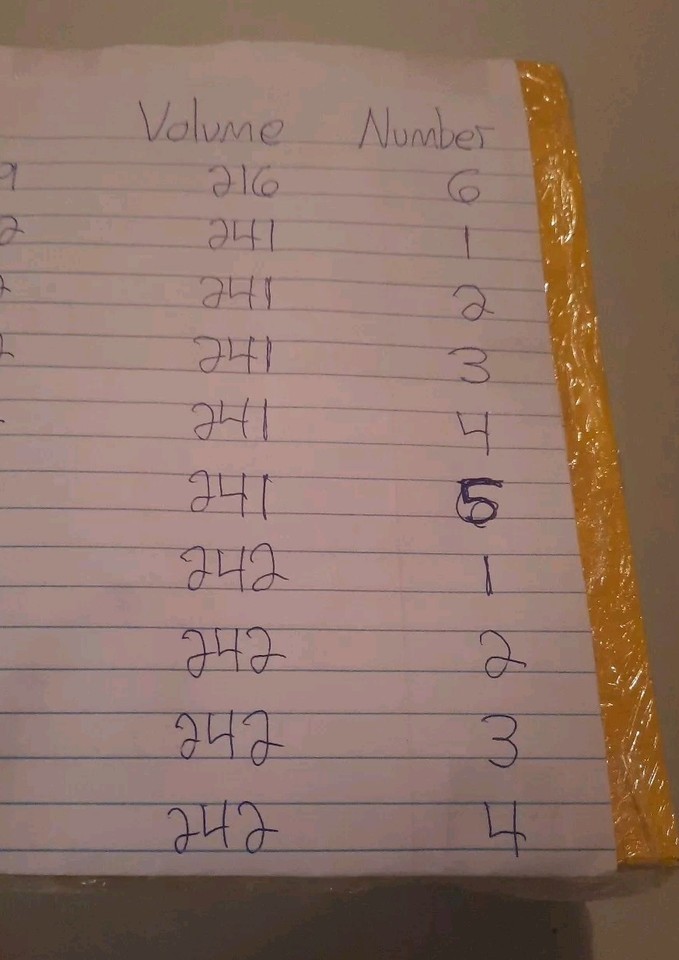 Volume Number
9 216 6
2 241 1
2 241 2
2 241 3
241 4
241 5
242 1
242 2
242 3
242 4